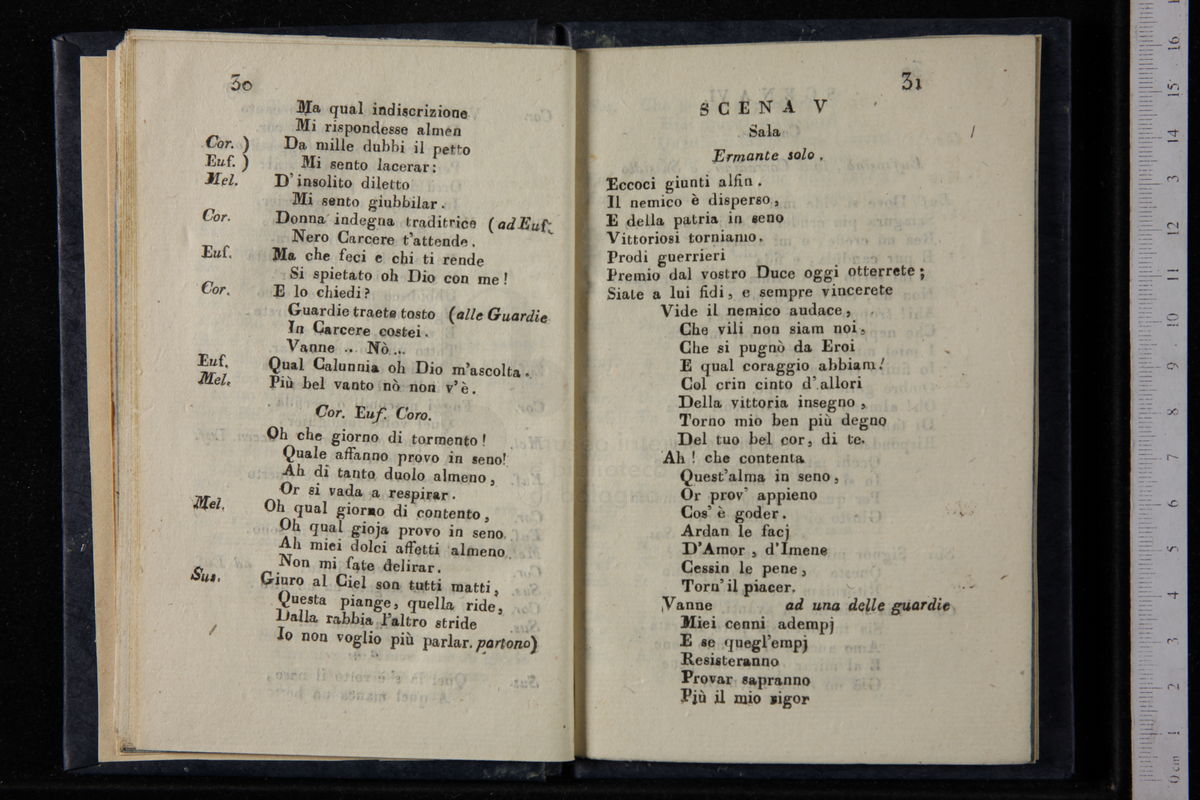 30
Ma qual indiscrizione
Mi rispondesse almen
Cor. ) Da mille dubbi il petto
Euf. ) Mi sento lacerar:
Mel. D'insolito diletto
Mi sento giubbilar.
Cor. Donna indegna traditrice (ad Euf.
Nero Carcere t'attende.
Euf. Ma che feci e chi ti rende
Si spietato oh Dio con me!
Cor. E lo chiedi?
Guardie traete tosto (alle Guardie
In Carcere costei.
Vanne .. Nò...
Euf. Qual Calunnia oh Dio m'ascolta.
Mel. Più bel vanto nò non v'è.
Cor. Euf. Coro.
Oh che giorno di tormento!
Quale affanno provo in seno!
Ah di tanto duolo almeno,
Or si vada a respirar.
Mel. Oh qual giorno di contento,
Oh qual gioja provo in seno.
Ah miei dolci affetti almeno
Non mi fate delirar.
Sus. Giuro al Ciel son tutti matti,
Questa piange, quella ride,
Dalla rabbia l'altro stride
Io non voglio più parlar. partono)
31
SCENA V
Sala
Ermante solo.
Eccoci giunti alfin.
Il nemico è disperso,
E della patria in seno
Vittoriosi torniamo.
Prodi guerrieri
Premio dal vostro Duce oggi otterrete;
Siate a lui fidi, e sempre vincerete
Vide il nemico audace,
Che vili non siam noi,
Che si pugnò da Eroi
E qual coraggio abbiam!
Col crin cinto d'allori
Della vittoria insegno,
Torno mio ben più degno
Del tuo bel cor, di te.
Ah! che contenta
Quest'alma in seno,
Or prov' appieno
Cos' è goder.
Ardan le facj
D'Amor, d'Imene
Cessin le pene,
Torn' il piacer.
Vanne ad una delle guardie
Miei cenni adempj
E se quegl'empj
Resisteranno
Provar sapranno
Più il mio rigor